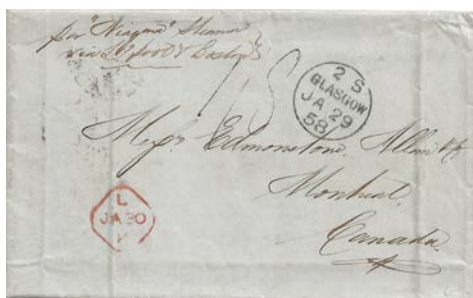 per "Niagara" Steamer
via L'pool & Boston
2 S
GLASGOW
JA 29
58
Mess Edmonstone Allan & Co
Montreal
Canada
L
JA 30